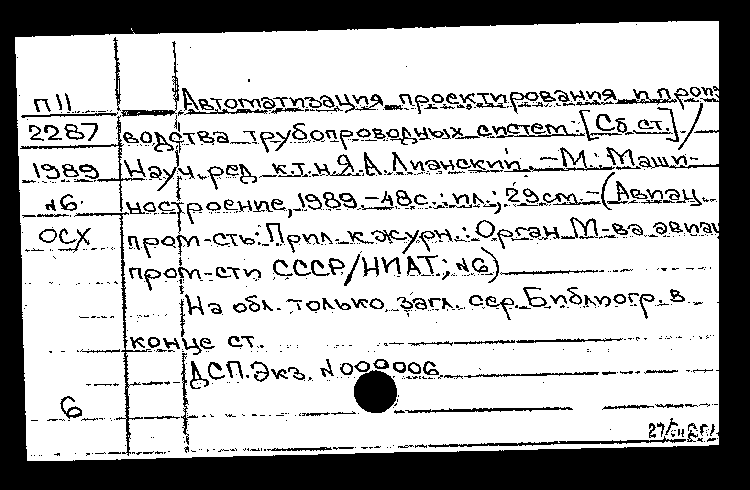 П 11 Автоматизация проектирования и произ-
2287 водства трубопроводных систем: [Сб. ст.] /
1989 Науч. ред. к.т.н. Я.А. Лианский. – М.: Маши-
№6 ностроение, 1989. – 48с.: ил.; 29см. – (Авиац.
ОСХ пром-сть: Прил. к журн.: Орган М-ва авиац
пром-сти СССР/НИАТ.; №6)
На обл. только загл. сер. Библиогр. в
конце ст.
ДСП. Экз. №000006
6